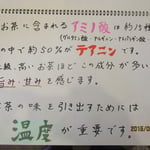 お茶に含まれるアミノ酸は約15種
(グルタミン酸・アルギニン・アスパラギン酸
の中で約50%がテアニンです。
級、高いお茶ほどこの成分が多い
旨み・甘みを感じます。
茶の味を引き出すためには
温度が重要です。
2018/0